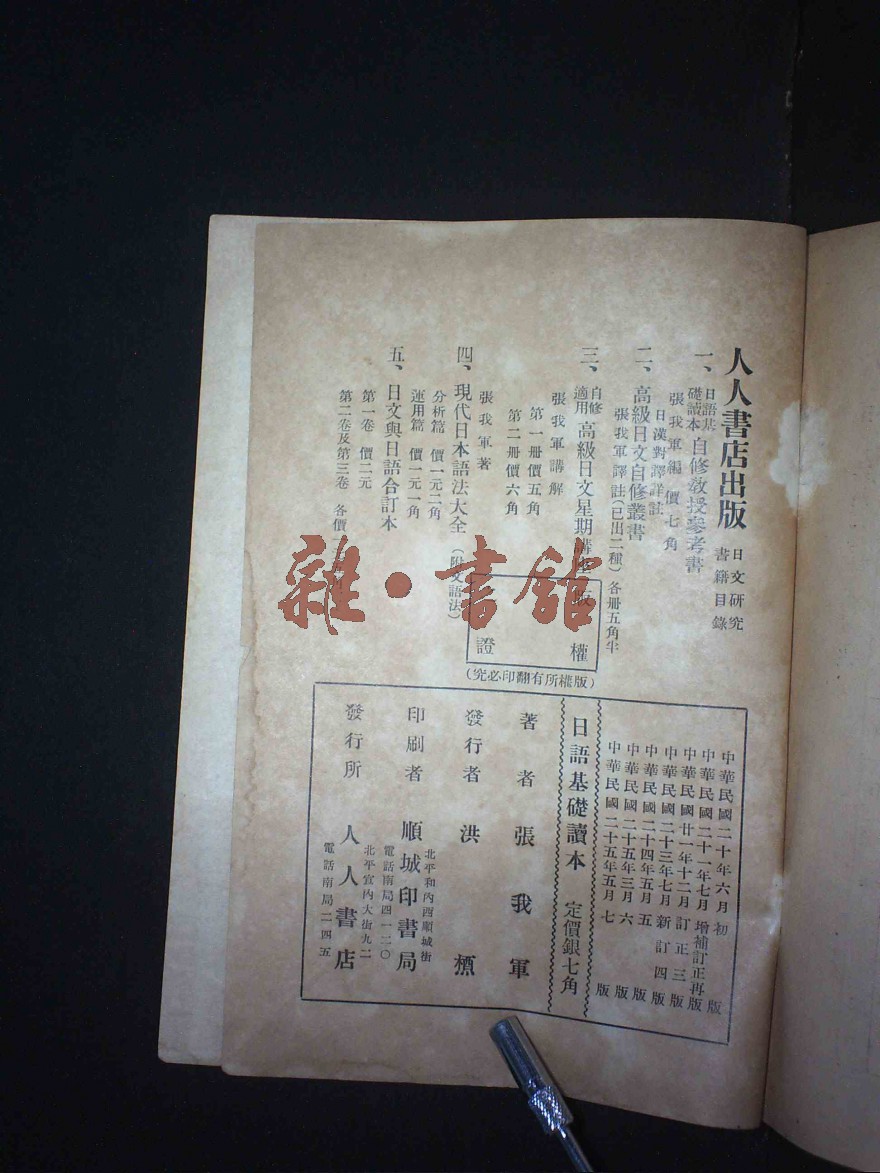 人人書店出版
日文研究
書籍目錄
一、日語基
礎讀本
自修教授參考書
張我軍編 價七角
二、高級日文自修叢書
日漢對譯詳註
張我軍譯註(已出二種)各冊五角半
三、自修
適用
高級日文星期講座
張我軍講解
第一冊價五角
第二冊價六角
四、現代日本語法大全(附文語法)
張我軍著
分析篇 價一元二角
運用篇 價一元一角
五、日文與日語合訂本
第一卷 價二元
第二卷及第三卷 各價
雜·書館
版權
證
(版權所有翻印必究)
中華民國二十年六月初版
中華民國二十一年七月增補訂正再版
中華民國廿一年十二月訂正三版
中華民國二十三年七月新訂四版
中華民國二十四年五月五版
中華民國二十五年三月六版
中華民國二十五年五月七版
日語基礎讀本 定價銀七角
著者 張我軍
發行者 洪槱
印刷者 順城印書局
北平和內西順城街
電話南局四一二〇
發行所 人人書店
北平宣內大街九二
電話南局二四五